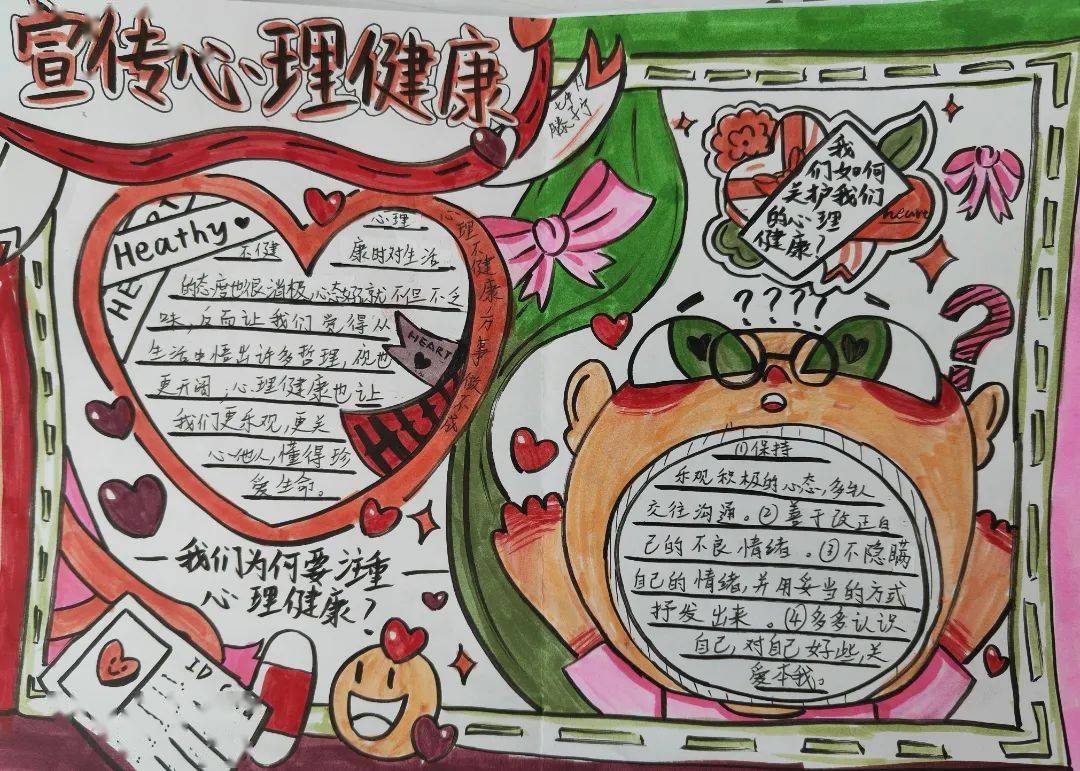 宣传心理健康
Heathy
心理
不健康时对生活
的态度也很消极,心态好就不但不乏
味,反而让我们觉得从
生活中悟出许多哲理,视也
更开阔,心理健康也让
我们更乐观,更关
心他人,懂得珍
爱生命。
HEART
心理不健康万事做不成
我们为何要注重
心理健康?
ID
我
们如何
关护我们
的心理
健康?
heart
????
?
①保持
乐观积极的心态,多与人
交往沟通。②善于改正自
己的不良情绪。③不隐瞒
自己的情绪,并用妥当的方式
抒发出来。④多多认识
自己,对自己好些,关
爱本我。